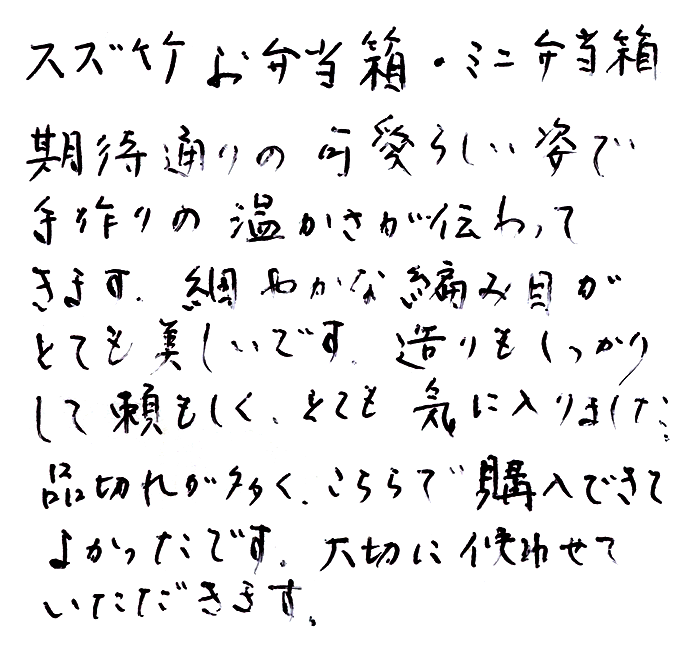 スズ竹 お弁当箱・ミニ弁当箱
期待通りの可愛らしい姿で
手作りの温かさが伝わって
きます。細やかな編み目が
とても美しいです。造りもしっかり
して頼もしく、とても気に入りました。
品切れが多く、こちらで購入できて
よかったです。大切に使わせて
いただきます。